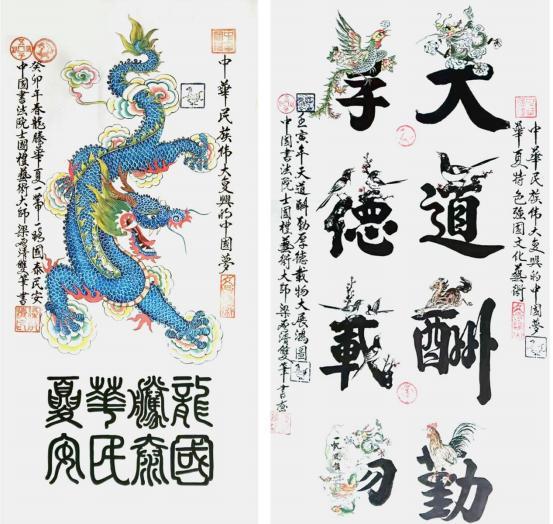 中華民族伟大复興的中国梦
癸卯年春龍騰華夏一带一路國泰民安
中国書法院士國禮藝術大師梁
雙筆書
龍騰華夏
國泰民安
中華民族伟大复興的中国梦
華夏特色強國文化藝術
天道酬勤
厚德載物
壬寅年天道酬勤厚德載物大展鴻圖
中国書法院士國禮藝術大師梁
雙筆書意